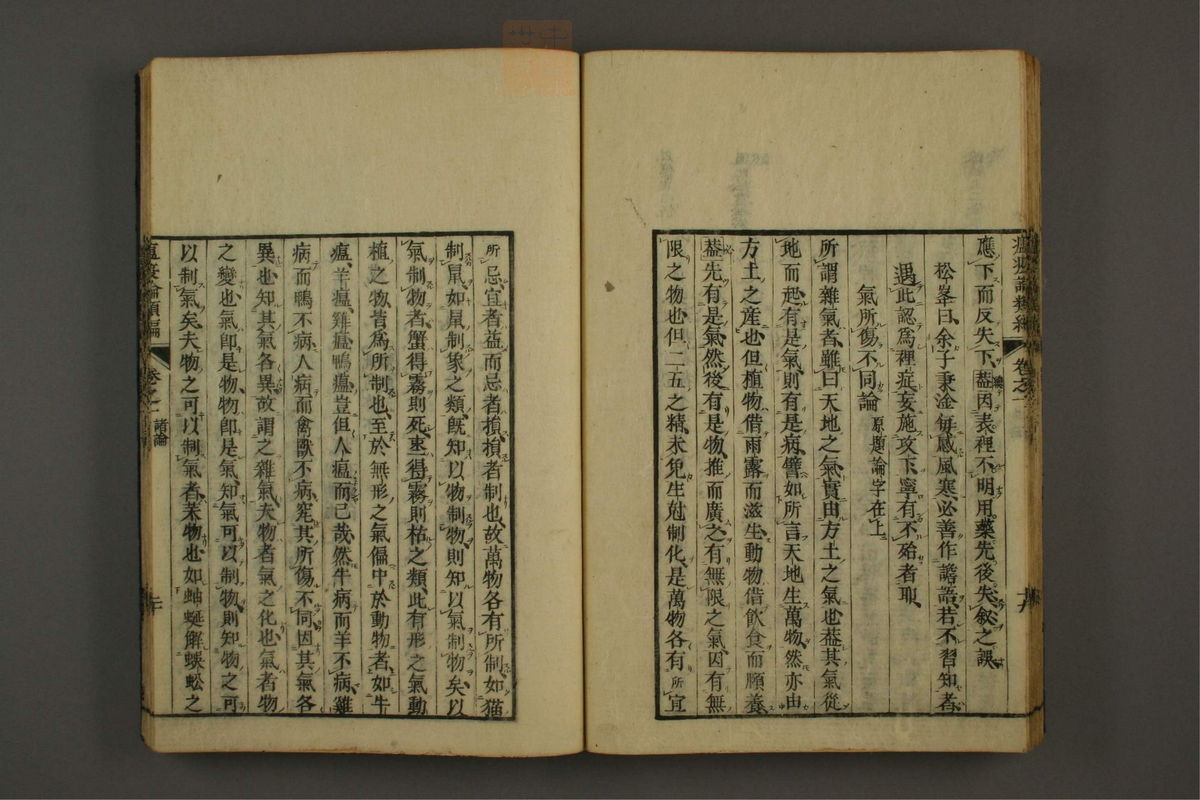 應下而反失下蓋因表裡不明用藥先後失敘之誤
松峯曰余子秉淦每感風寒必善作譫語若不習知者
遇此認為裡症妄施攻下寧有不殆者耶
氣所傷不同論 原題論字在上
所謂雜氣者雖曰天地之氣實由方土之氣也葢其氣從
地而起有是氣則有是病譬如所言天地生萬物然亦由
方土之產也但植物借雨露而滋生動物借飲食而順養
葢先有是氣然後有是物推而廣之有無限之氣因有無
限之物也但二五之精未免生尅制化是萬物各有所宜
所忌宜者益而忌者損損者制也故萬物各有所制如猫
制鼠如鼠制象之類既知以物制物則知以氣制物矣以
氣制物者蟹得霧則死棗得霧則枯之類此有形之氣動
植之物皆為所制也至於無形之氣偏中於動物者如牛
瘟羊瘟雞瘟鴨瘟豈但人瘟而已哉然牛病而羊不病雞
病而鴨不病人病而禽獸不病究其所傷不同因其氣各
異也知其氣各異故謂之雜氣夫物者氣之化也氣者物
之變也氣即是物物即是氣知氣可以制物則知物之可
以制氣矣夫物之可以制氣者藥物也如蚰蜒解蜈蚣之
瘟疫論類編 卷之一 諸論